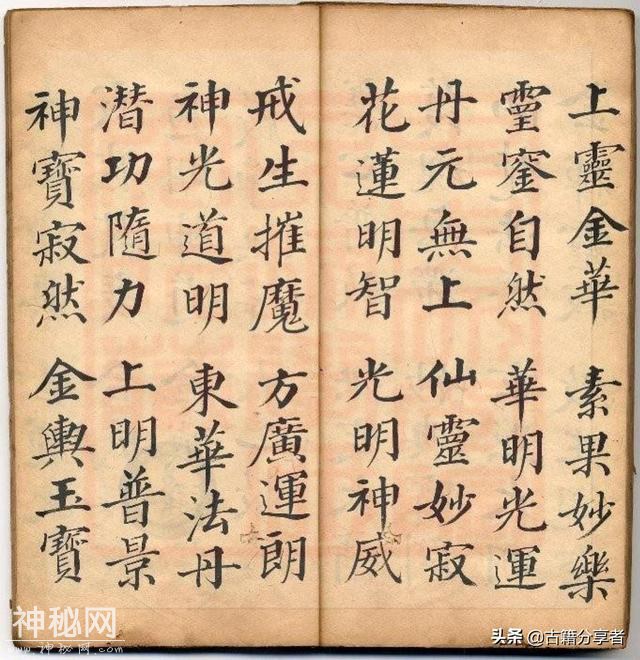 上靈金華 素果妙樂
霊窒自然 華明光運
丹元無上 仙靈妙寂
花蓮明智 光明神威
戒生摧魔 方廣運朗
神光道明 東華法丹
潛功隨力 上明普景
神寶寂然 金輿玉寶
神秘网
www.神秘网.com
头条 @古籍分享者